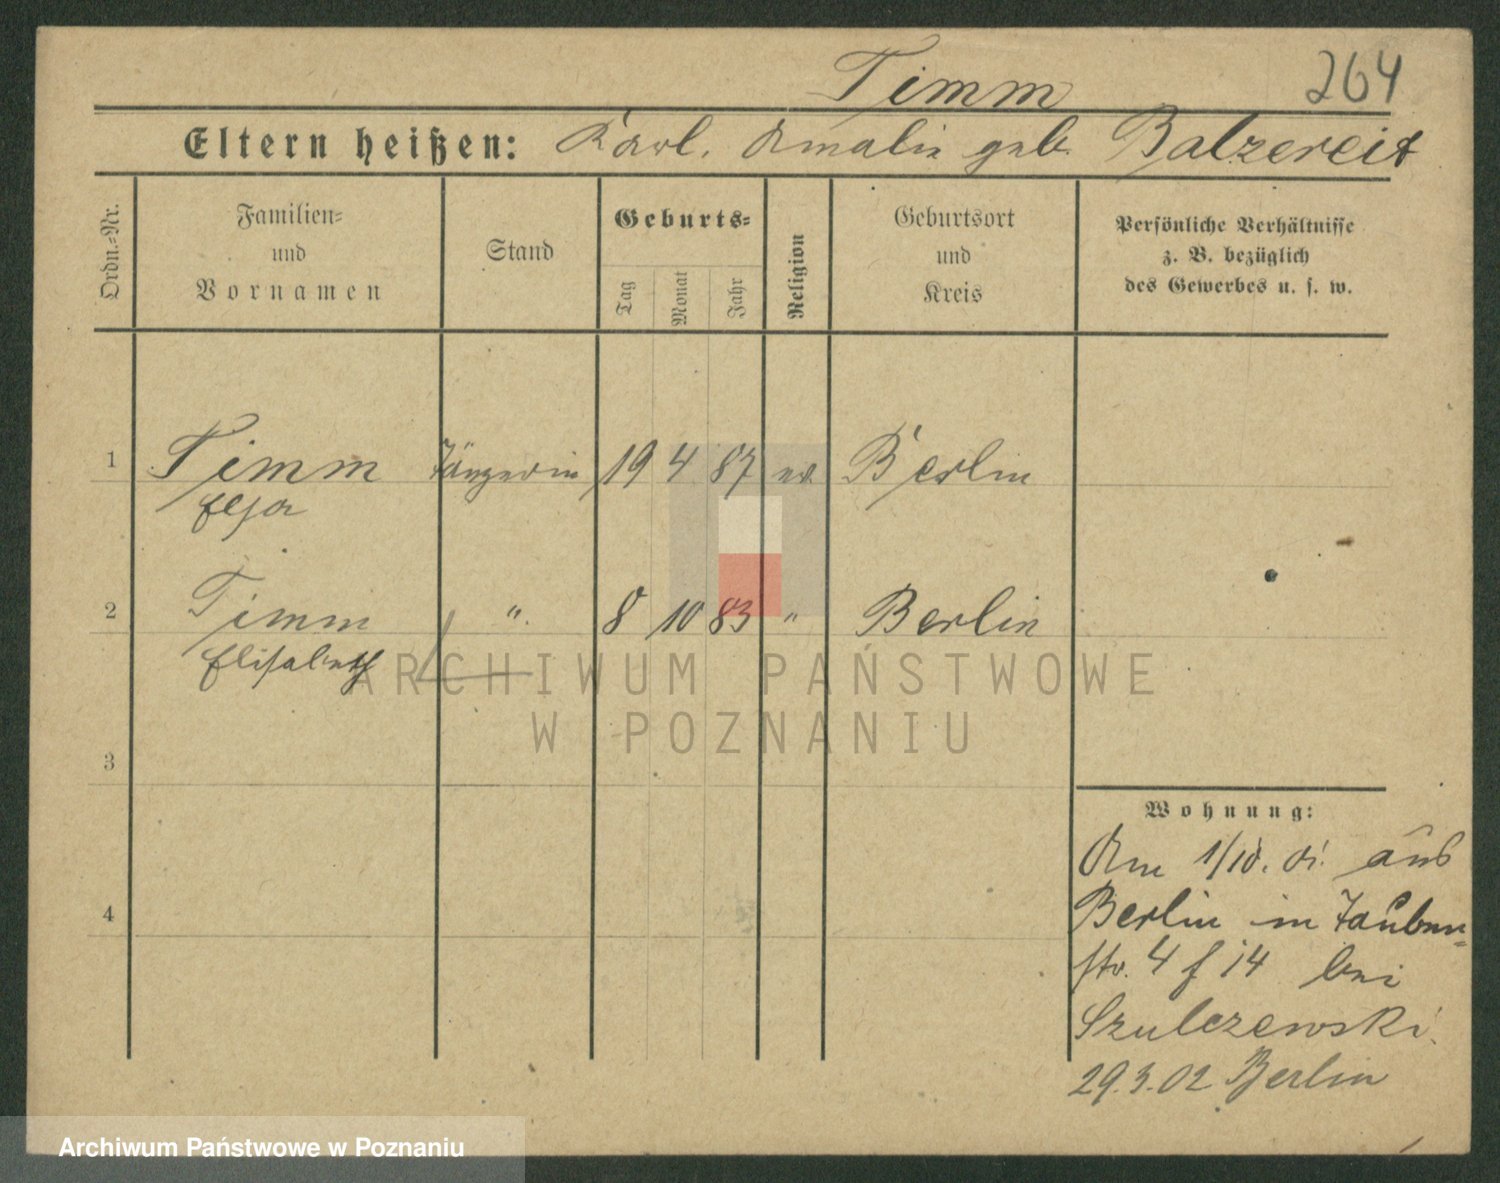 Timm 264
Eltern heißen: Karl. Amalie geb. Balzereit
Ordn.-Nr.
Familien- und Vornamen
Stand
Geburts-
Tag
Monat
Jahr
Religion
Geburtsort und Kreis
Persönliche Verhältnisse
z. B. bezüglich
des Gewerbes u. s. w.
1 Timm Sängerin 19 4 87 ev. Berlin
Elsa
2 Timm " 8 10 83 " Berlin
Elisabeth
3
4
Wohnung:
Am 1/10. 01. aus
Berlin in Tauben-
str. 4 f 14 bei
Szulczewski.
29.3.02 Berlin
ARCHIWUM PAŃSTWOWE
W POZNANIU
Archiwum Państwowe w Poznaniu